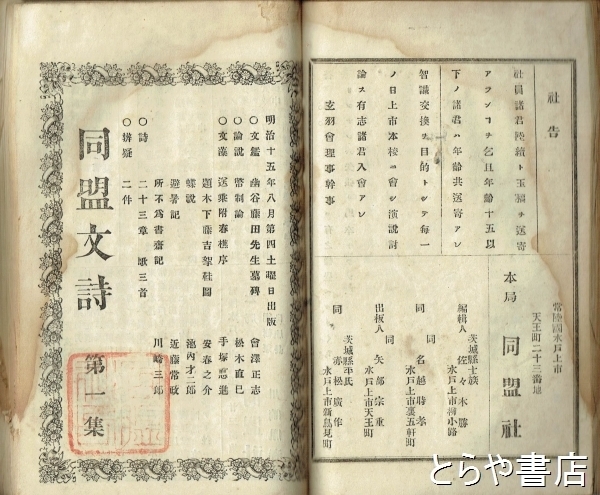 社告
社員諸君陸續ト玉稿ヲ送寄
アランコヲ乞且年齢十五以
下ノ諸君ハ年齢共送寄アレ
智識交換ヲ目的トシテ毎一
ノ日上市本校ニ會シ演説討
論ス有志諸君入會アレ
玄羽會理事幹事
常陸國水戸上市
天王町二十三番地
本局 同盟社
茨城縣士族
編輯人 佐々木勝
水戸上市梅小路
同 名越時孝
水戸上市裏五軒町
同
出板人 矢部宗重
水戸上市天王町
茨城縣平民
同 赤松廣作
水戸上市新鳥見町
明治十五年八月第四土曜日出版
〇文鑑 幽谷藤田先生墓碑 會澤正志
〇論説 幣制論 松木直巳
〇文藻 送乘附春樵序 手塚惠進
題木下藤古架鞋圖 安春之介
蝶説 池内才二郎
避暑記 近藤常政
所不為書齋記 川崎三郎
〇詩 二十三章 歌三首
〇辨疑 二件
同盟文詩 第一集
とらや書店